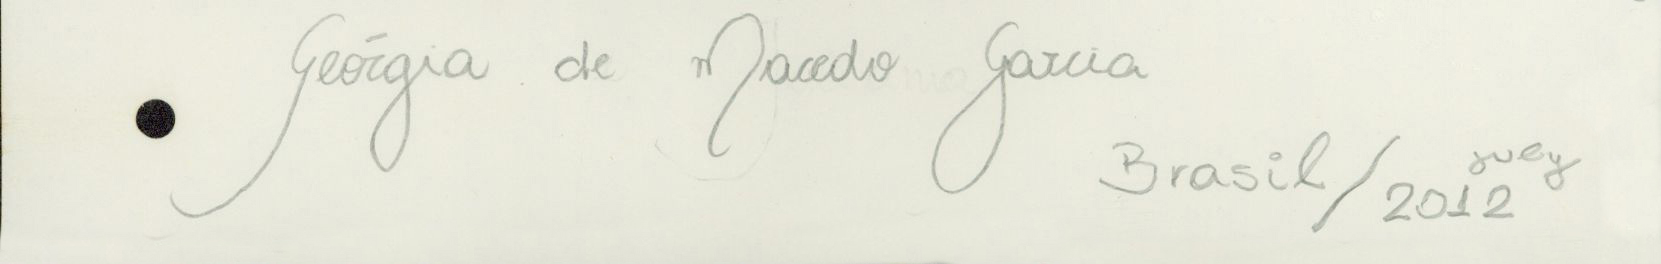 Geórgia de Macedo Garcia
Brasil/2012